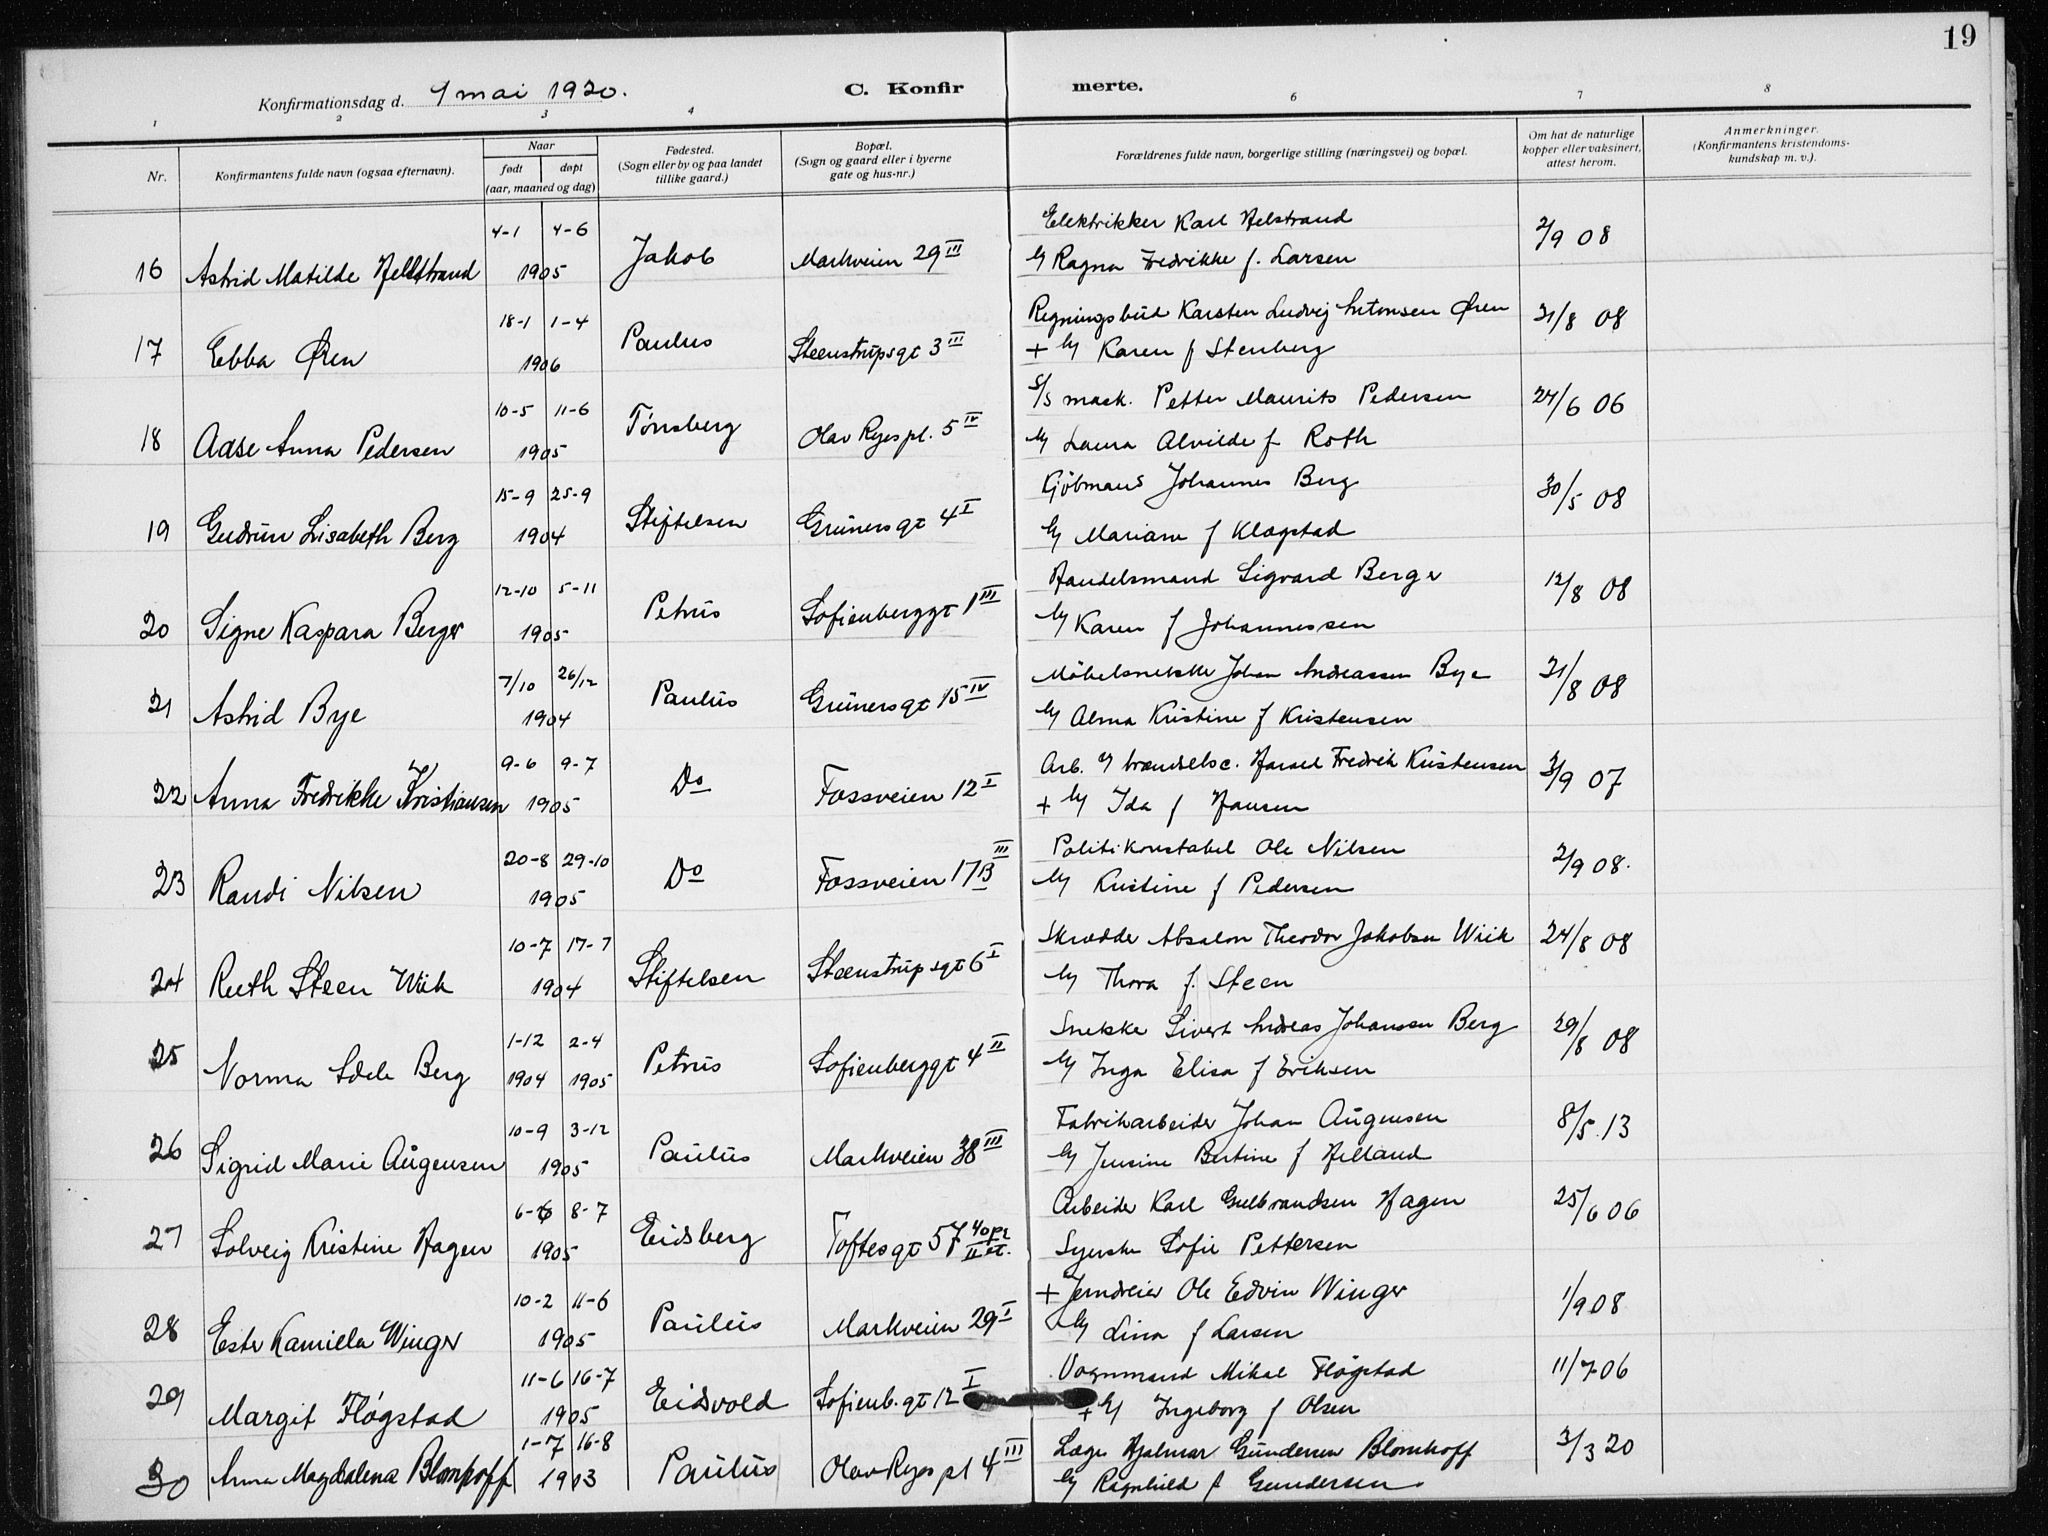 19
Konfirmationsdag d. 9 mai 1920. C. Konfir merte.
1 2 3 4 6 7 8
Nr. Konfirmantens fulde navn (ogsaa efternavn). Naar født døpt (aar, maaned og dag) Fødested. (Sogn eller by og paa landet tillike gaard.) Bopæl. (Sogn og gaard eller i byerne gate og hus-nr.) Forældrenes fulde navn, borgerlige stilling (næringsvei) og bopæl. Om hat de naturlige kopper eller vaksinert, attest herom. Anmerkninger. (Konfirmantens kristendomskundskap m. v.).
4-1 4-6 Elektrikker Karl Helstrand 2/9 08
16 Astrid Matilde Hellstrand 1905 Jakob Markveien 29 III og Ragna Fredrikke f. Larsen
18-1 1-4 Regningsbud Karsten Ludvig Antonsen Øren 31/8 08
17 Ebba Øren 1906 Paulus Steenstrupsgt 3 III + og Karen f Stenberg
10-5 11-6 S/S mask. Petter Maurits Pedersen 24/6 06
18 Aase Anna Pedersen 1905 Tønsberg Olav Ryes pl. 5 IV og Laura Alvilde f Roth
15-9 25-9 Kjøbmand Johannes Berg 30/5 08
19 Gudrun Lisabeth Berg 1904 Stiftelsen Grünersgt 4 I og Mariane f Klogstad
12-10 5-11 Handelsmand Sigvard Berger 12/8 08
20 Signe Kaspara Berger 1905 Petrus Sofienberggt 1 III og Karen f Johannessen
7/10 26/12 Møbelsnekker Johan Andreassen Bye 31/8 08
21 Astrid Bye 1904 Paulus Grünersgt 15 IV og Alma Kristine f Kristensen
9-6 9-7 Arb. Harald Fredrik Kristensen 3/9 07
22 Anna Fredrikke Kristiansen 1905 Do Fossveien 12 I + og Ida f Hansen
20-8 29-10 Politikonstabel Ole Nilsen 2/9 08.
23 Randi Nilsen 1905 Do Fossveien 17 B III og Kristine f Pedersen
10-7 17-7 Skrædder Absalon Theodor Jakobsen Wiik 24/8 08
24 Ruth Steen Wiik 1904 Stiftelsen Steenstrupsgt 6 I og Thora f. Steen
1-12 2-4 Snekker Sivert Andreas Johansen Berg 29/8 08
25 Norma Berg 1904 1905 Petrus Sofienberggt 4 II og Inga Elisa f Eriksen
10-9 3-12 Fabrikarbeider Johan Augensen 8/5. 13
26 Sigrid Marie Augensen 1905 Paulus Markveien 38 III og Jensine Bertine f Helland
6-6 8-7 Arbeider Karl Gulbrandsen Hagen 25/6 06
27 Solveig Kristine Hagen 1905 Eidsberg Toftesgt 57 II et. Syerske Sofie Pettersen
10-2 11-6 + Jerndreier Ole Edvin Winger 1/9 08
28 Ester Kamilla Winger 1905 Paulus Markveien 29 I og Lina f Larsen
11-6 16-7 Vognmand Mikal Fløgstad 11/7-06
29 Margit Fløgstad 1905 Eidsvold Sofienb.gt 12 I + og Ingeborg f Olsen
1-7 16-8 Læge Hjalmar Gundersen Blomhoff 3/3 20
30 Anna Magdalena Blomhoff 1903 Paulus Olav Ryes pl 4 III og Ragnhild f Gundersen